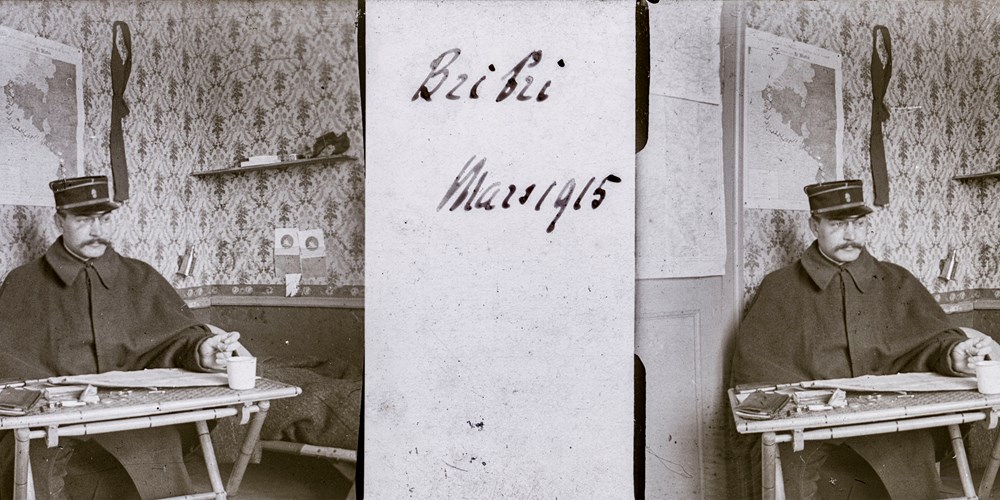 Bri Bri
Mars 1915